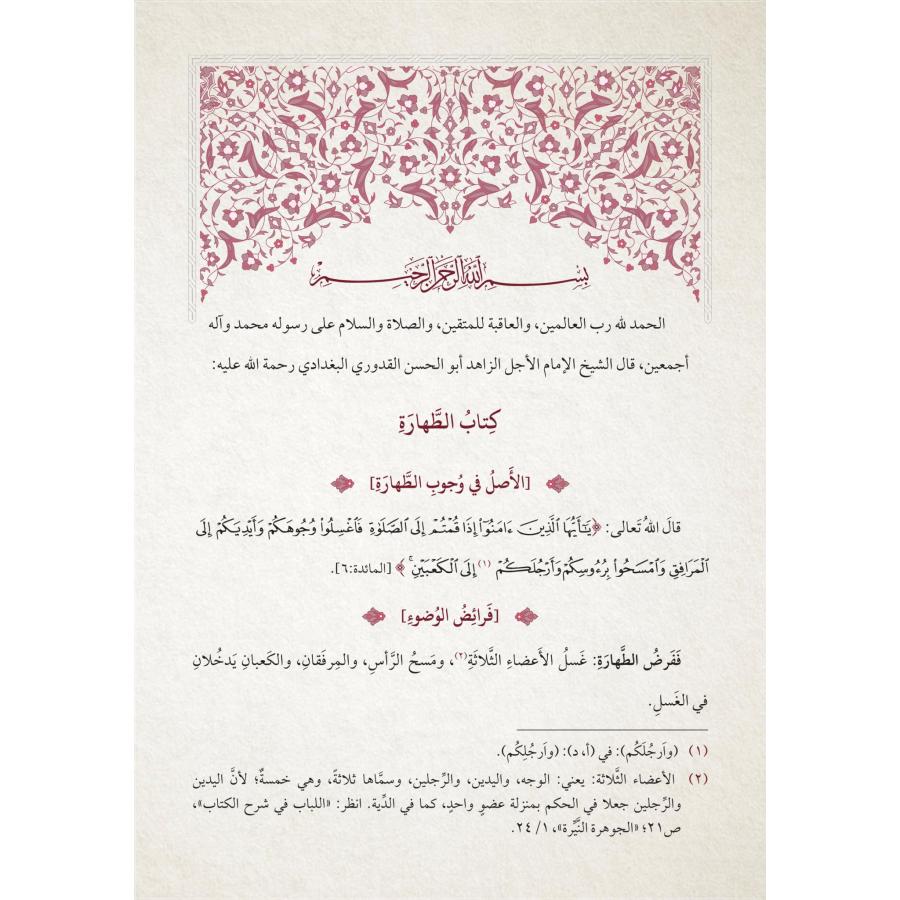 بسم الله الرحمن الرحيم
الحمد لله رب العالمين، والعاقبة للمتقين، والصلاة والسلام على رسوله محمد وآله
أجمعين، قال الشيخ الإمام الأجل الزاهد أبو الحسن القدوري البغدادي رحمة الله عليه:
كِتابُ الطَّهارَةِ
[الأَصلُ في وُجوبِ الطَّهارَةِ]
قالَ اللهُ تَعالى: ﴿يَٰٓأَيُّهَا ٱلَّذِينَ ءَامَنُوٓاْ إِذَا قُمۡتُمۡ إِلَى ٱلصَّلَوٰةِ فَٱغۡسِلُواْ وُجُوهَكُمۡ وَأَيۡدِيَكُمۡ إِلَى
ٱلۡمَرَافِقِ وَٱمۡسَحُواْ بِرُءُوسِكُمۡ وَأَرۡجُلَكُمۡ (١) إِلَى ٱلۡكَعۡبَيۡنِۚ﴾ [المائدة:٦].
[فَرائِضُ الوُضوءِ]
فَفَرضُ الطَّهارَةِ: غَسلُ الأَعضاءِ الثَّلاثَةِ(٢)، ومَسحُ الرَّأسِ، والمِرفَقانِ، والكَعبانِ يَدخُلانِ
في الغَسلِ.
(١) (وأرجُلَكُم): في (أ، د): (وأرجُلِكُم).
(٢) الأعضاء الثَّلاثة: يعني: الوجه، واليدين، والرِّجلين، وسمَّاها ثلاثةً، وهي خمسةٌ؛ لأنَّ اليدين
والرِّجلين جعلا في الحكم بمنزلة عضوٍ واحدٍ، كما في الدِّية. انظر: «اللباب في شرح الكتاب»،
ص٢١؛ «الجوهرة النَّيِّرة»، ١/ ٢٤.